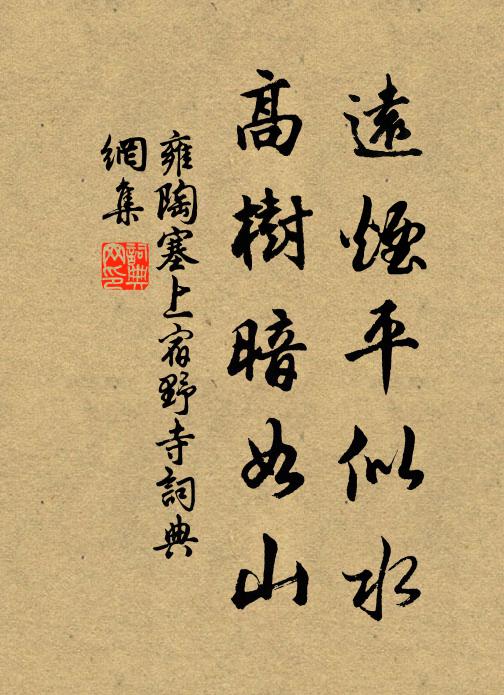 遠煙平似水
高樹暗如山
雍陶塞上宿野寺詞典
網集
詞典
网印